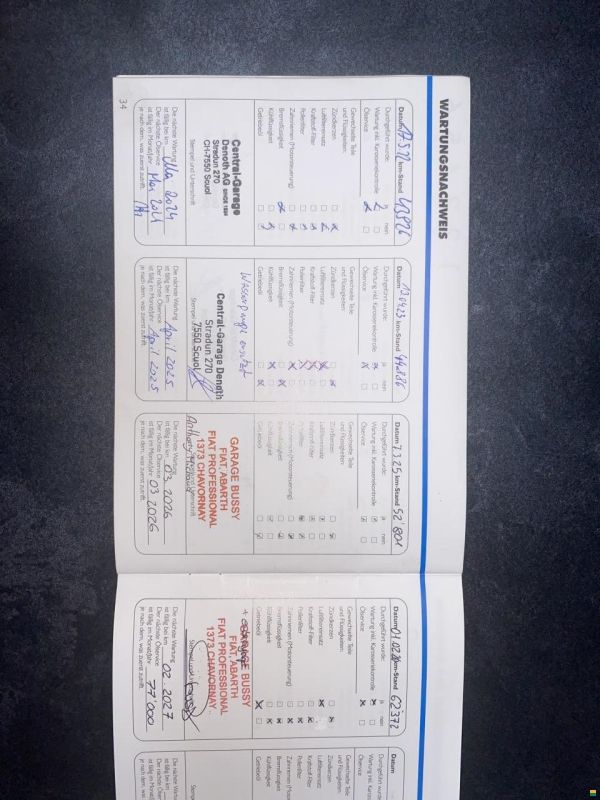 WARTUNGSNACHWEIS
Datum km-Stand 43826
Durchgeführt wurde: ja nein
Wartung inkl. Karosseriekontrolle
Ölservice
Gewechselte Teile
und Flüssigkeiten:
Zündkerzen
Luftfiltereinsatz
Kraftstoff-Filter
Pollenfilter
Zahnriemen (Motorsteuerung)
Bremsflüssigkeit
Kühlflüssigkeit
Getriebeöl
Central-Garage
Denoth AG SINCE 1926
Stradun 270
CH-7550 Scuol
Stempel und Unterschrift
Die nächste Wartung
ist fällig bei km 2024
Der nächste Ölservice
ist fällig im Monat/Jahr
je nach dem, was zuerst zutrifft.
34
Datum 13.04.23 km-Stand
Durchgeführt wurde: ja nein
Wartung inkl. Karosseriekontrolle
Ölservice
Gewechselte Teile
und Flüssigkeiten:
Zündkerzen
Luftfiltereinsatz
Kraftstoff-Filter
Pollenfilter
Zahnriemen (Motorsteuerung)
Bremsflüssigkeit
Kühlflüssigkeit
Getriebeöl
Wasserpumpe ersetzt
Central-Garage Denoth
Stradun 270
7550 Scuol
Die nächste Wartung
ist fällig bei km April 2025
Der nächste Ölservice
ist fällig im Monat/Jahr April 2025
je nach dem, was zuerst zutrifft.
Datum 7.3.25 km-Stand 52'801
Durchgeführt wurde: ja nein
Wartung inkl. Karosseriekontrolle
Ölservice
Gewechselte Teile
und Flüssigkeiten:
Zündkerzen
Luftfiltereinsatz
Kraftstoff-Filter
Pollenfilter
Zahnriemen (Motorsteuerung)
Bremsflüssigkeit
Kühlflüssigkeit
Getriebeöl
GARAGE BUSSY
FIAT, ABARTH
FIAT PROFESSIONAL
1373 CHAVORNAY
Die nächste Wartung
ist fällig bei km 03.2026
Der nächste Ölservice
ist fällig im Monat/Jahr 03 2026
je nach dem, was zuerst zutrifft.
Datum km-Stand 62'372
Durchgeführt wurde: ja nein
Wartung inkl. Karosseriekontrolle
Ölservice
Gewechselte Teile
und Flüssigkeiten:
Zündkerzen
Luftfiltereinsatz
Kraftstoff-Filter
Pollenfilter
Zahnriemen (Motorsteuerung)
Bremsflüssigkeit
Kühlflüssigkeit
Getriebeöl
GARAGE BUSSY
FIAT, ABARTH
FIAT PROFESSIONAL
1373 CHAVORNAY
Die nächste Wartung
ist fällig bei km 02.2027
Der nächste Ölservice
ist fällig im Monat/Jahr 77'000
je nach dem, was zuerst zutrifft.
Datum
Durchgeführt wurde:
Wartung inkl.
Ölservice
Gewechselte Teile
und Flüssigkeiten:
Zündkerzen
Luftfiltereinsatz
Kraftstoff-Filter
Pollenfilter
Zahnriemen
Bremsflüssigkeit
Kühlflüssigkeit
Getriebeöl
Die nächste Wartung
ist fällig bei km
Der nächste Ölservice
ist fällig im
je nach dem,